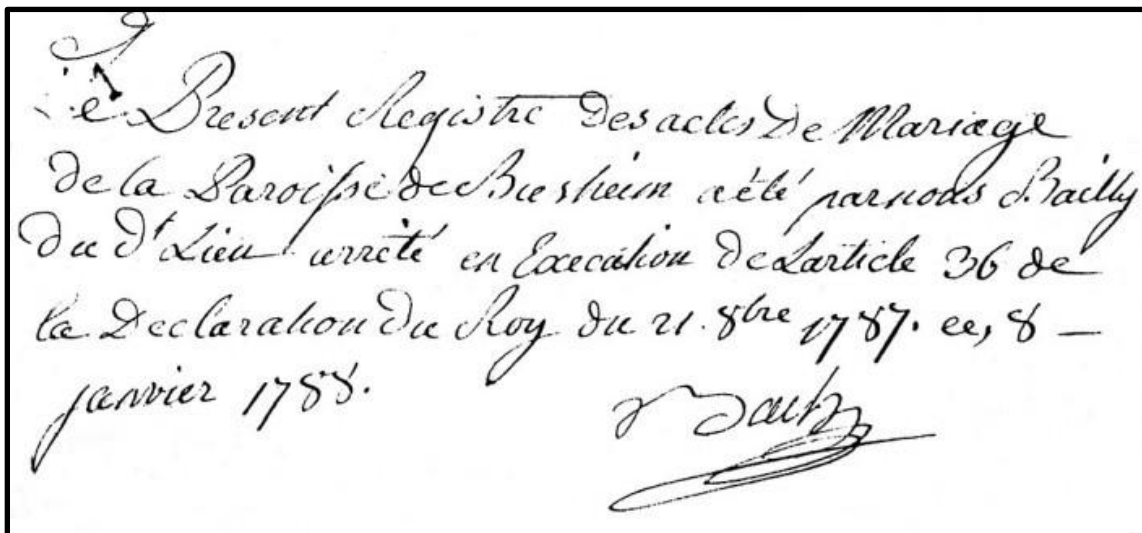 Le Present Registre Des actes De Mariage
De la Paroisse de Biesheim a été par nous Bailly
Du d.t Lieu arrêté en Execution De L'article 36 de
la Declaration Du Roy du 21. 8bre 1787. ce, 8 —
janvier 1788.